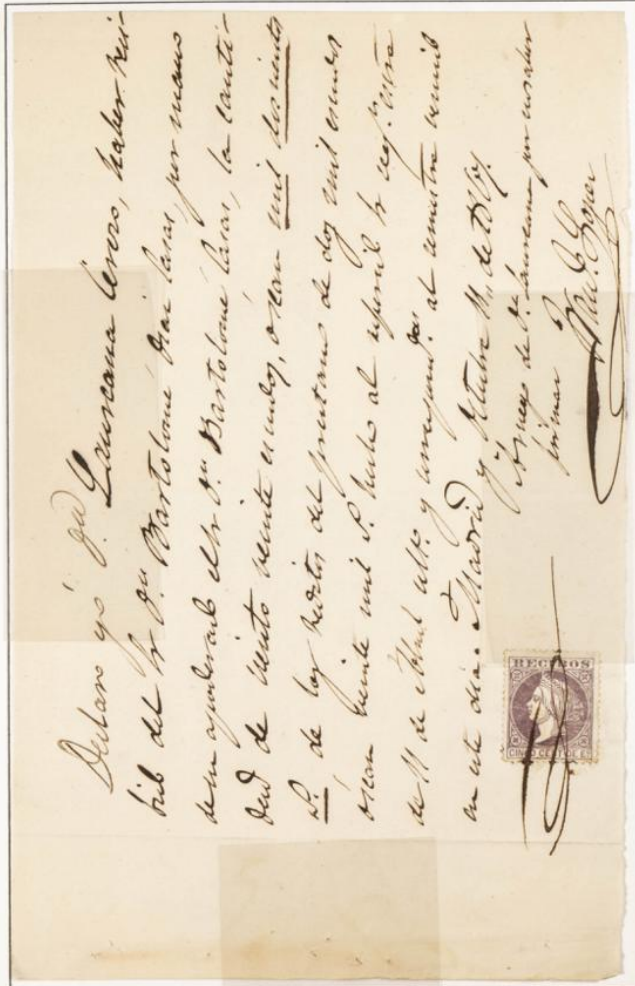 Declaro yo Dª Laureana Cerero, haber reci-
bido del Sr Dn Bartolomé Diaz Casas, por mano
de su apoderado el Sr Dn Bartolomé Casas, la canti-
dad de ciento veinte escudos, ó sean mil doscientos
rs. de los reditos del prestamo de dos mil escudos
ó sean veinte mil rs. hecho al espresado Sr segn escra
de 11 de Abril ulto. y correspondte. al semestre vencido
en este dia. Madrid y Octubre 11, de 1867.
A ruego de Dª Laureana por no saber
firmar
Fran. Lopez
RECIBOS
CINCO CENT DE ESº